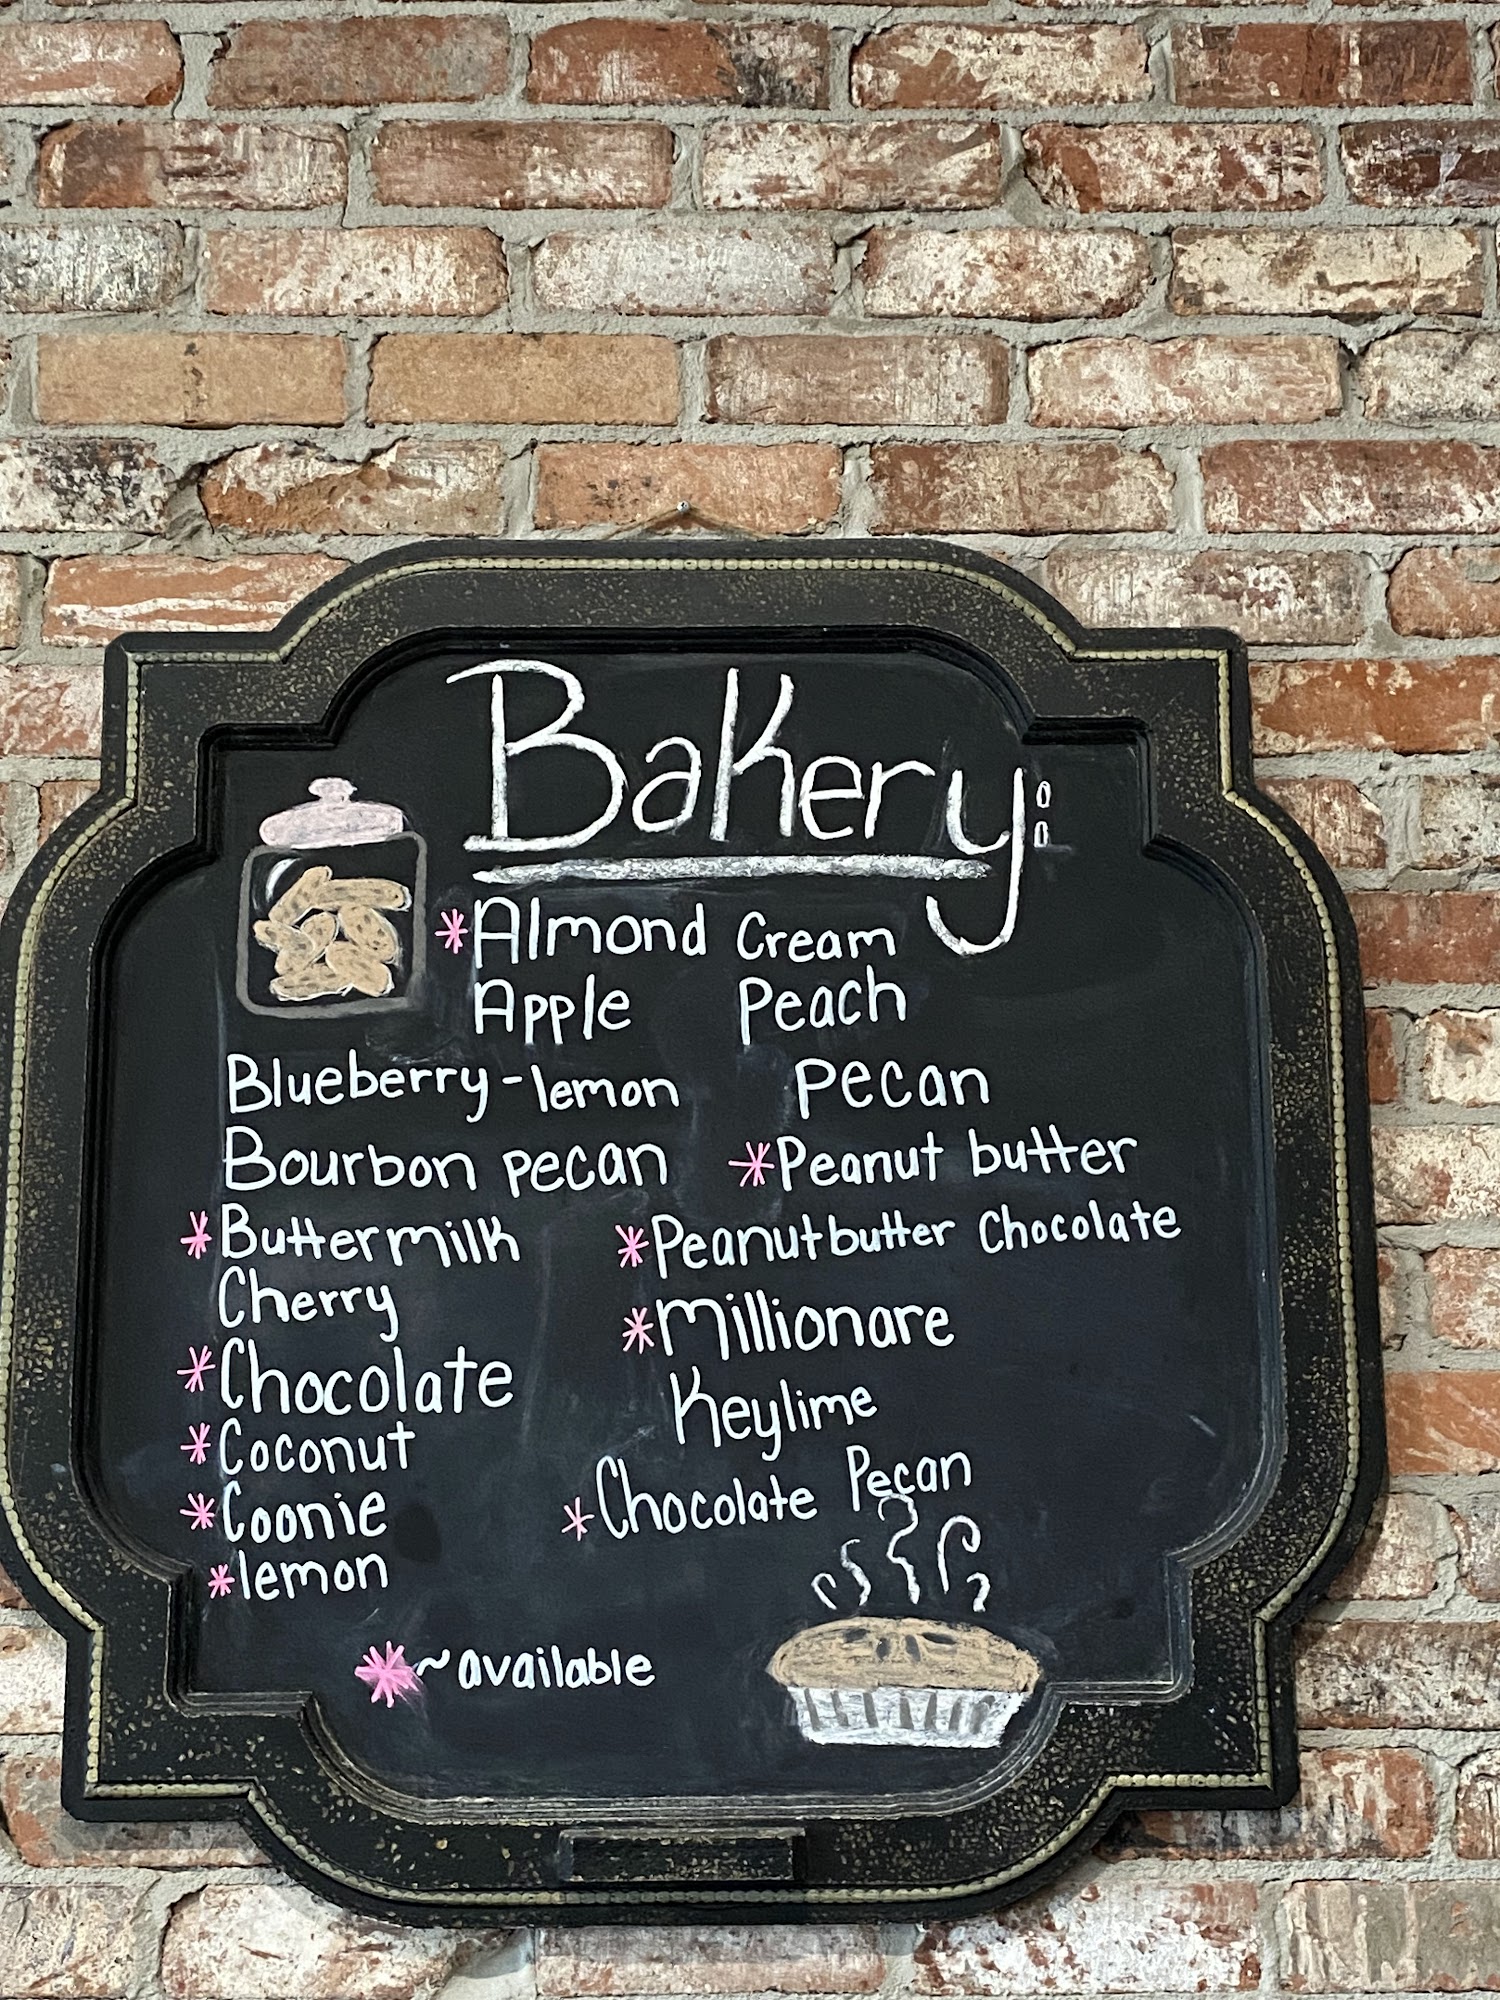 Bakery:
*Almond Cream
Apple
Peach
Blueberry-lemon
Pecan
Bourbon pecan
*Peanut butter
*Buttermilk
*Peanutbutter Chocolate
Cherry
*Millionare
*Chocolate
Keylime
*Coconut
*Chocolate Pecan
*Coonie
*lemon
*~available